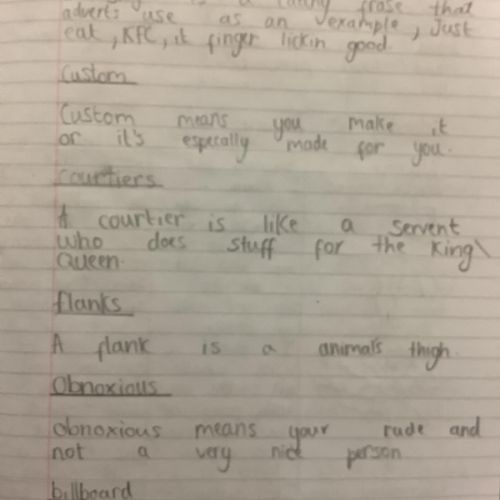 is a catchy frase that
adverts use as an example, Just
eat, KFC, it finger lickin good
Custom
Custom means you make it
or it's especally made for you.
Courtiers
A courtier is like a servent
who does stuff for the King\
Queen.
flanks
A flank is a animals thigh
Obnoxious
obnoxious means your rude and
not a very nice person
billboard